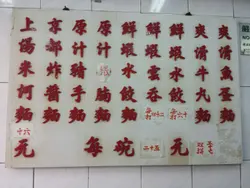 爽滑魚蛋麵
爽滑牛丸麵
鮮蝦水餃麵
鮮蝦雲吞麵
原汁腩麵
原汁豬手麵
京都炸醬麵
上湯米麵
元
每碗
元
十六